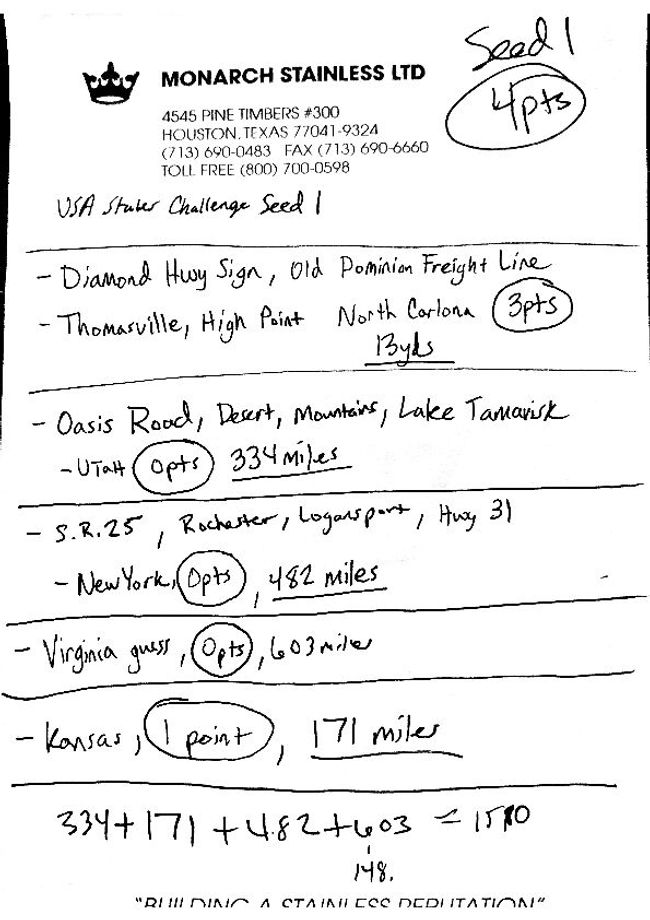 Seed 1
4pts
MONARCH STAINLESS LTD
4545 PINE TIMBERS #300
HOUSTON, TEXAS 77041-9324
(713) 690-0483 FAX (713) 690-6660
TOLL FREE (800) 700-0598
USA Challenge Seed 1
- Diamond Hwy Sign, Old Dominion Freight Line
- Thomasville, High Point North Carlona 3pts
13yds
- Oasis Road, Desert, Mountains, Lake Tamarisk
- UTAH 0pts 334 Miles
- S.R.25, Rochester, Logansport, Hwy 31
- New York, 0pts, 482 miles
- Virginia guess, 0pts, 603 miles
- Kansas, 1 point, 171 miles
334+171+482+603 = 1590
148.
"BUILDING A STAINLESS REPUTATION"